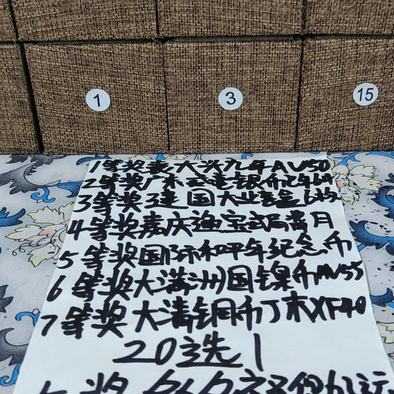 1 3 15
1等奖袁大头九年AU50
2等奖广东
3等奖建国大业
4等奖嘉庆通宝宝局背月
5等奖国际和平年纪念币
6等奖大满洲国镍币AU55
7等奖大清铜币丁未XF40
20选1